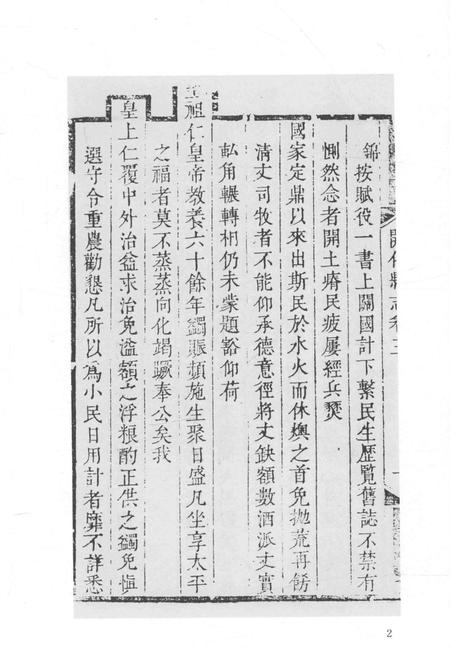 開化縣志卷三
一
錦按賦役一書上關國計下繫民生歷覽舊誌不禁有
惻然念者開土瘠民疲屢經兵燹
國家定鼎以來出斯民於水火而休燠之首免拋荒再飭
清丈司牧者不能仰承德意徑將丈缺額數洒派丈實
畝角輾轉相仍未蒙題豁仰荷
聖祖仁皇帝教養六十餘年蠲賑頻施生聚日盛凡坐享太平
之福者莫不蒸蒸向化竭蹶奉公矣我
皇上仁覆中外治益求治免溢額之浮粮酌正供之蠲免慎
選守令重農勸懇凡所以為小民日用計者靡不詳悉
2